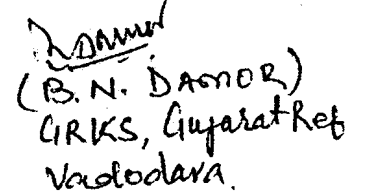 (B.N. DAMOR)
GRKS, Gujarat Ref
Vadodara.